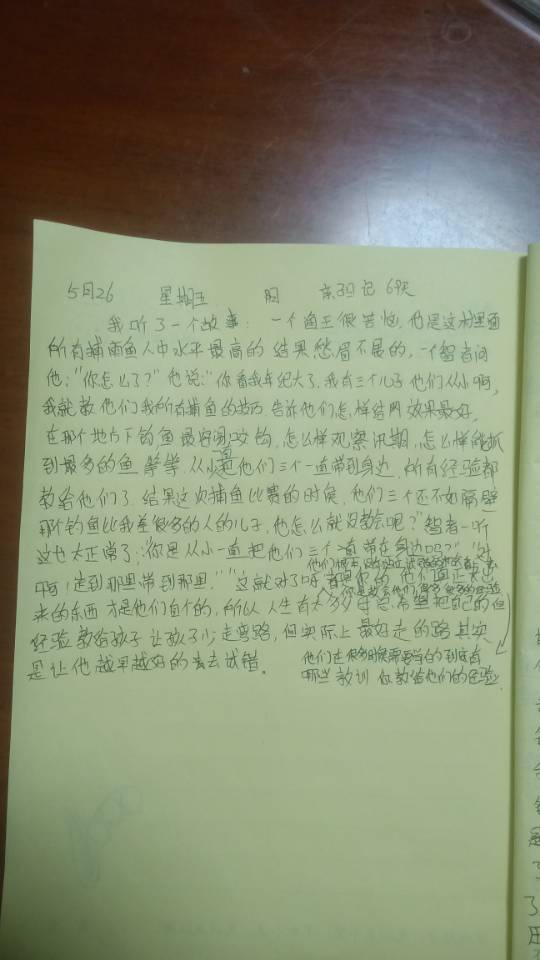 5月26 星期五 阴 亲子日记 69天
我听了一个故事: 一个渔王很苦恼, 他是这村里面
所有捕鱼人中水平最高的 结果愁眉不展的, 一个智者问
他:"你怎么了?" 他说:"你看我年纪大了, 我有三个儿子 他们从小啊,
我就教他们我所有捕鱼的技巧 告诉他们怎样结网 效果最好,
在那个地方下钩鱼最容易咬钩, 怎么样观察汛期, 怎么样能抓
到最多的鱼 等等, 从小把他们三个一直带到身边, 所有经验都
教给他们了, 结果这次捕鱼比赛的时候, 他们三个还不如隔壁
那个钓鱼比我差很多的人的儿子, 他怎么就没教会呢?" 智者一听
这也太正常了:"你是从小一直把他们三个一直带在身边吗?" "对
啊! 走到那里带到那里." "这就对了呀 他们真正买出
来的东西 才是他们自个的, 所以人生有太多父母总希望把自己的
经验教给孩子 让孩子少走弯路, 但实际上最好走的路其实
是让他越早越好的去试错.
他们在很多时候需要学的 到底有
哪些教训 你教给他们的经验